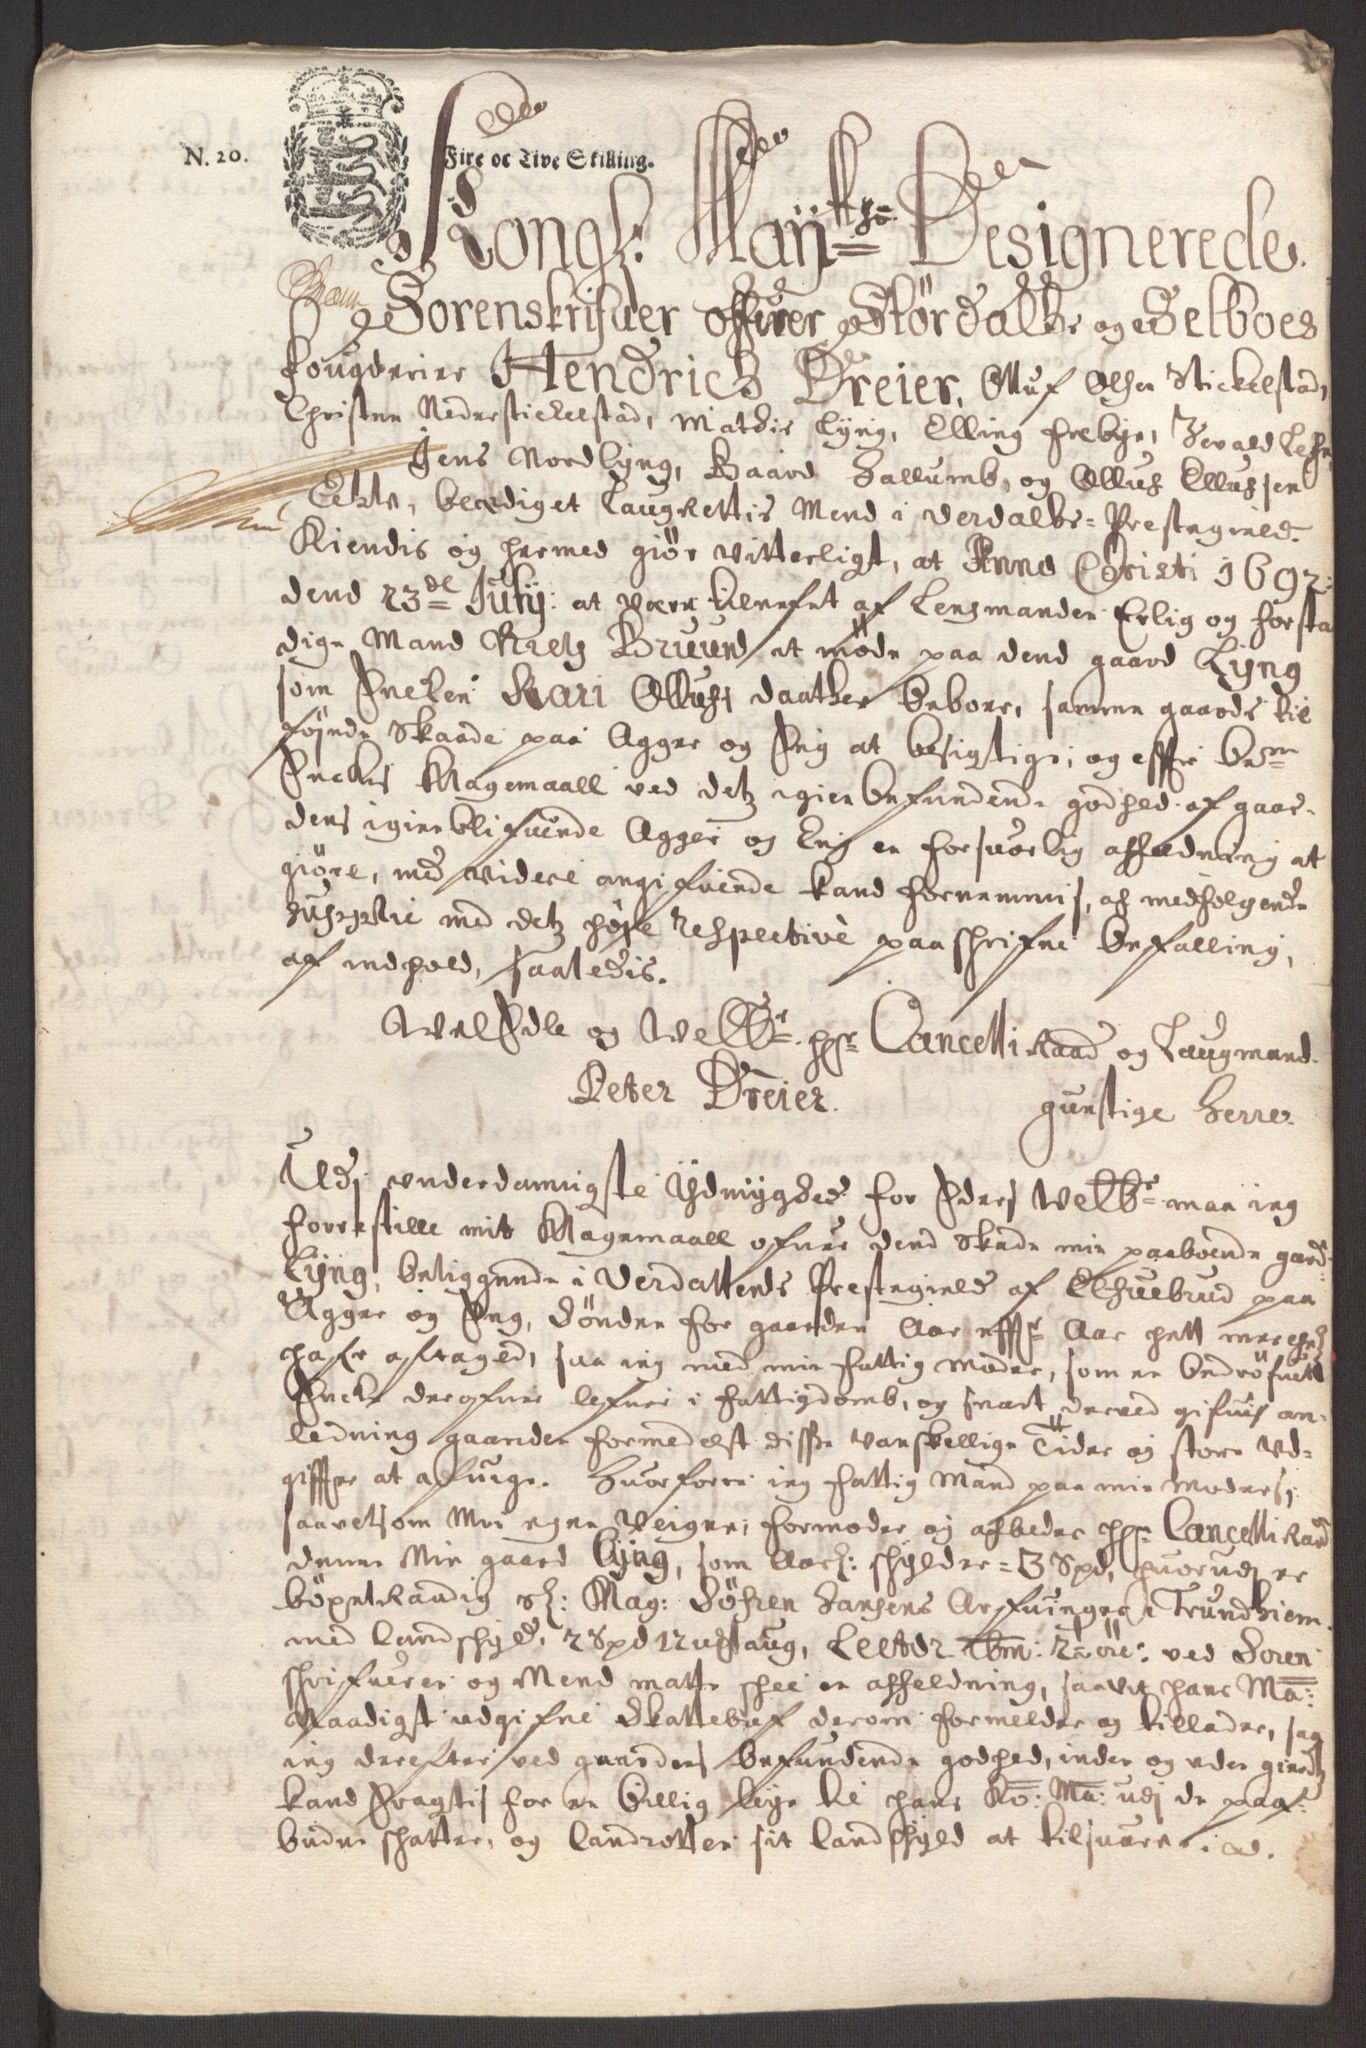 N. 20. Fire oc Tive Skilling.
Kongl: Maÿtts Designerede
Sorenskrifuer offuer Stördalls og Selboes
fougderier Hendrich Dreier, Olluf Olsen Stickelstad,
Christen Nederstickelstad, Mathis Lÿng, Elling Frebÿe, Sevald
Jens Nordlÿng, Baard Hallumb, og Ollus Ellussen
Eeklo, beædiget Laugrettis Mend i Verdalls Prestegield
Kiendis og hermed giör vitterligt, at Anno Christi 1692
dend 23de Julÿ at være tilneffnt af Lensmanden Erlig og forsta
dige Mand Niels Bruund at möde paa dend gaard Lÿng
som Encken Kari Ollus daatter beboer, samme gaards til
föjede Skaade paa Agger og Eng at besigtige, og effter bem
Enckes Klagemaall ved detz igien befundende godhed af gaar-
dens igien blifuende Agger og Eng en forsuarlig affeldning at
giöre, med videre angifuende kand fornemmis, af medfölgende
Supplic med detz höje respective paaschrifne befalling,
af indhold, saaledis.
WelEdle og Welbr. hr Cancelli Raad og Laugmand
Peter Dreier. gunstige Herre.
Udj underdannigste Ÿdmÿghed for Eders Welbr. maa ieg
forrestille mit Klagemaall ofuer dend Skade min paaboende gaard
Lÿng, beliggende i Verdallens Prestegield af Elfuebrud paa
Agger og Eng, Sönden for gaarden Aar effter Aar hett merchel
hafr aftaged, saa ieg med min fattig moder, som en bedröfuett
Encke derofuer lefuer i fattigdomb, og snart derved gifuis an-
ledning gaarden formedelst disse vanskellige Tider og store ud-
giffter at afuige. Huorforre ieg fattig Mand paa min moders,
saavelsom Min egen Veigne, formoder og afbeder hr Cancelli Raad
denne Min gaard Lÿng, som Aarl: schÿlder 3 Spd, huorudj er
böxelRaadig Sl: Mag: Söfren Hansens Arfuinger i Trundhiem
med landschÿld, 2 Spd 1 Ustaug, ved Soren
schrifueren og Mend motte schee en affeldning, saavit hans Ma:
Naadigst udgifne Skattebref derom formelder og tillader, saa
ieg derefter ved gaardens befundende godhed, inden og uden gierdes
kand fragtis for en billig leÿe til hans Ko: Ma: udj de paa-
budne schatter, og landrotten sit landschÿld at tilsuare. i ad.